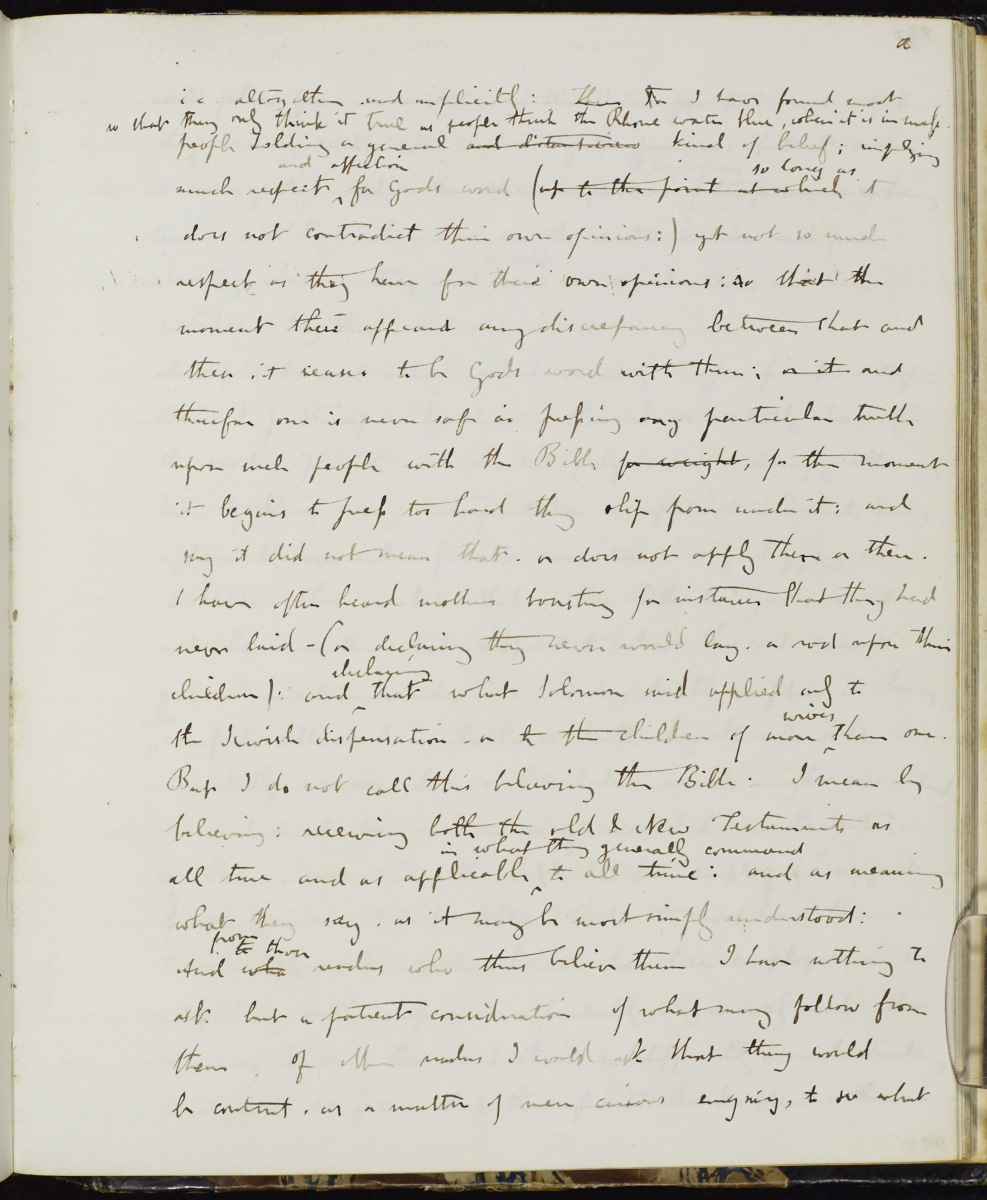 a
i.e. altogether and implicitly: For I have found most
so that they only think it true as people think the Rhone water blue, when it is in
people holding a general and distant view kind of belief; implying
and affection
so long as
much respect for Gods word (up to the point at which it
does not contradict their own opinions:) yet not so much
respect as they have for their own opinions: so that the
moment there appeared any discrepancy between that and
them it ceases to be Gods word with them; and
therefore one is never safe in pressing any particular truth
upon such people with the Bible for weight, for the moment
it begins to press too hard they slip from under it: and
say it did not mean that. or does not apply there or then.
I have often heard mothers boasting for instance that they had
never laid - (or declaring they never would lay. a rod upon their
declaring
children): and that what Solomon said applied only to
the Jewish dispensation. or to the children of more than one.
wives
But I do not call this believing the Bible. I mean by
believing: receiving both the old & New Testaments as
in what they generally command
all true and as applicable to all time: and as meaning
what they say. as it may be most simply understood:
from
to those
And who readers who thus believe them I have nothing to
ask but a patient consideration of what may follow from
them. Of other readers I would ask that they would
be content. as a matter of mere curious enquiry, to see what